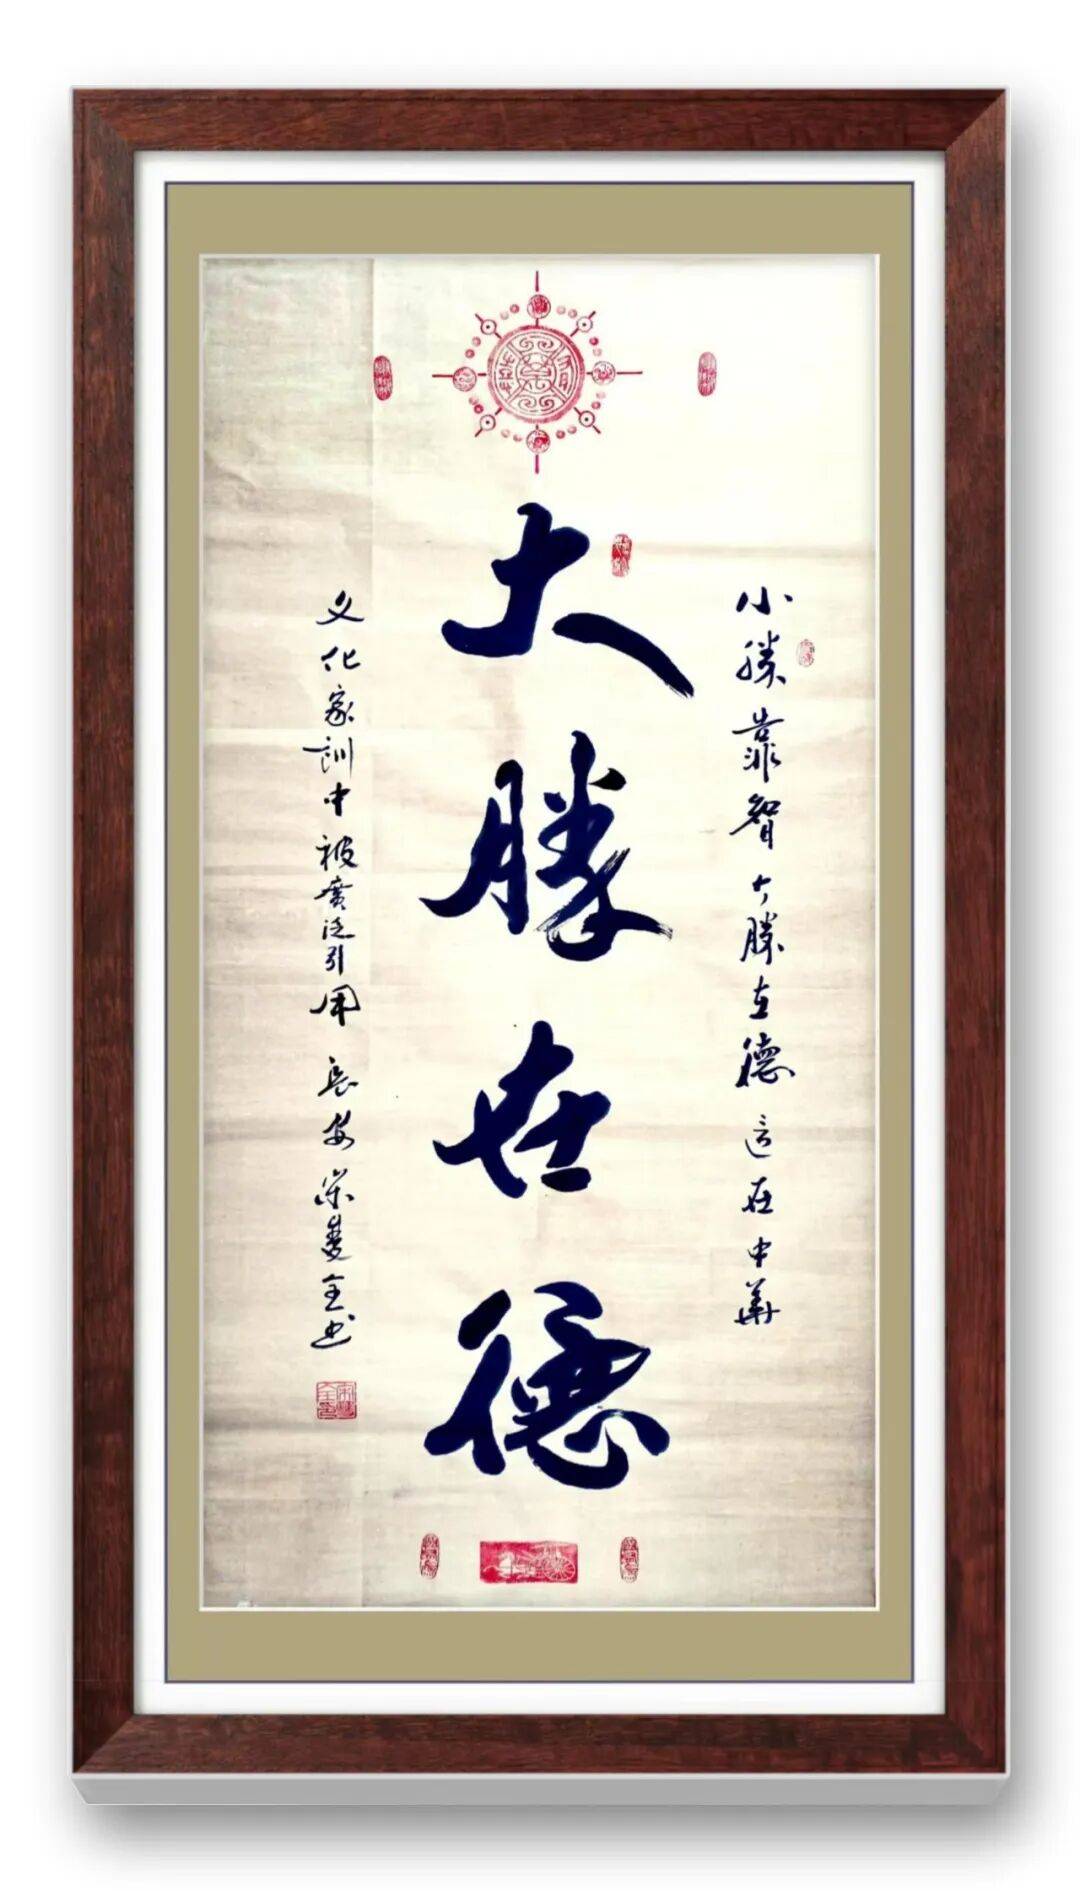 大勝在德
小勝靠智大勝在德這在中華
文化家訓中被廣泛引用 長安宋雙全书